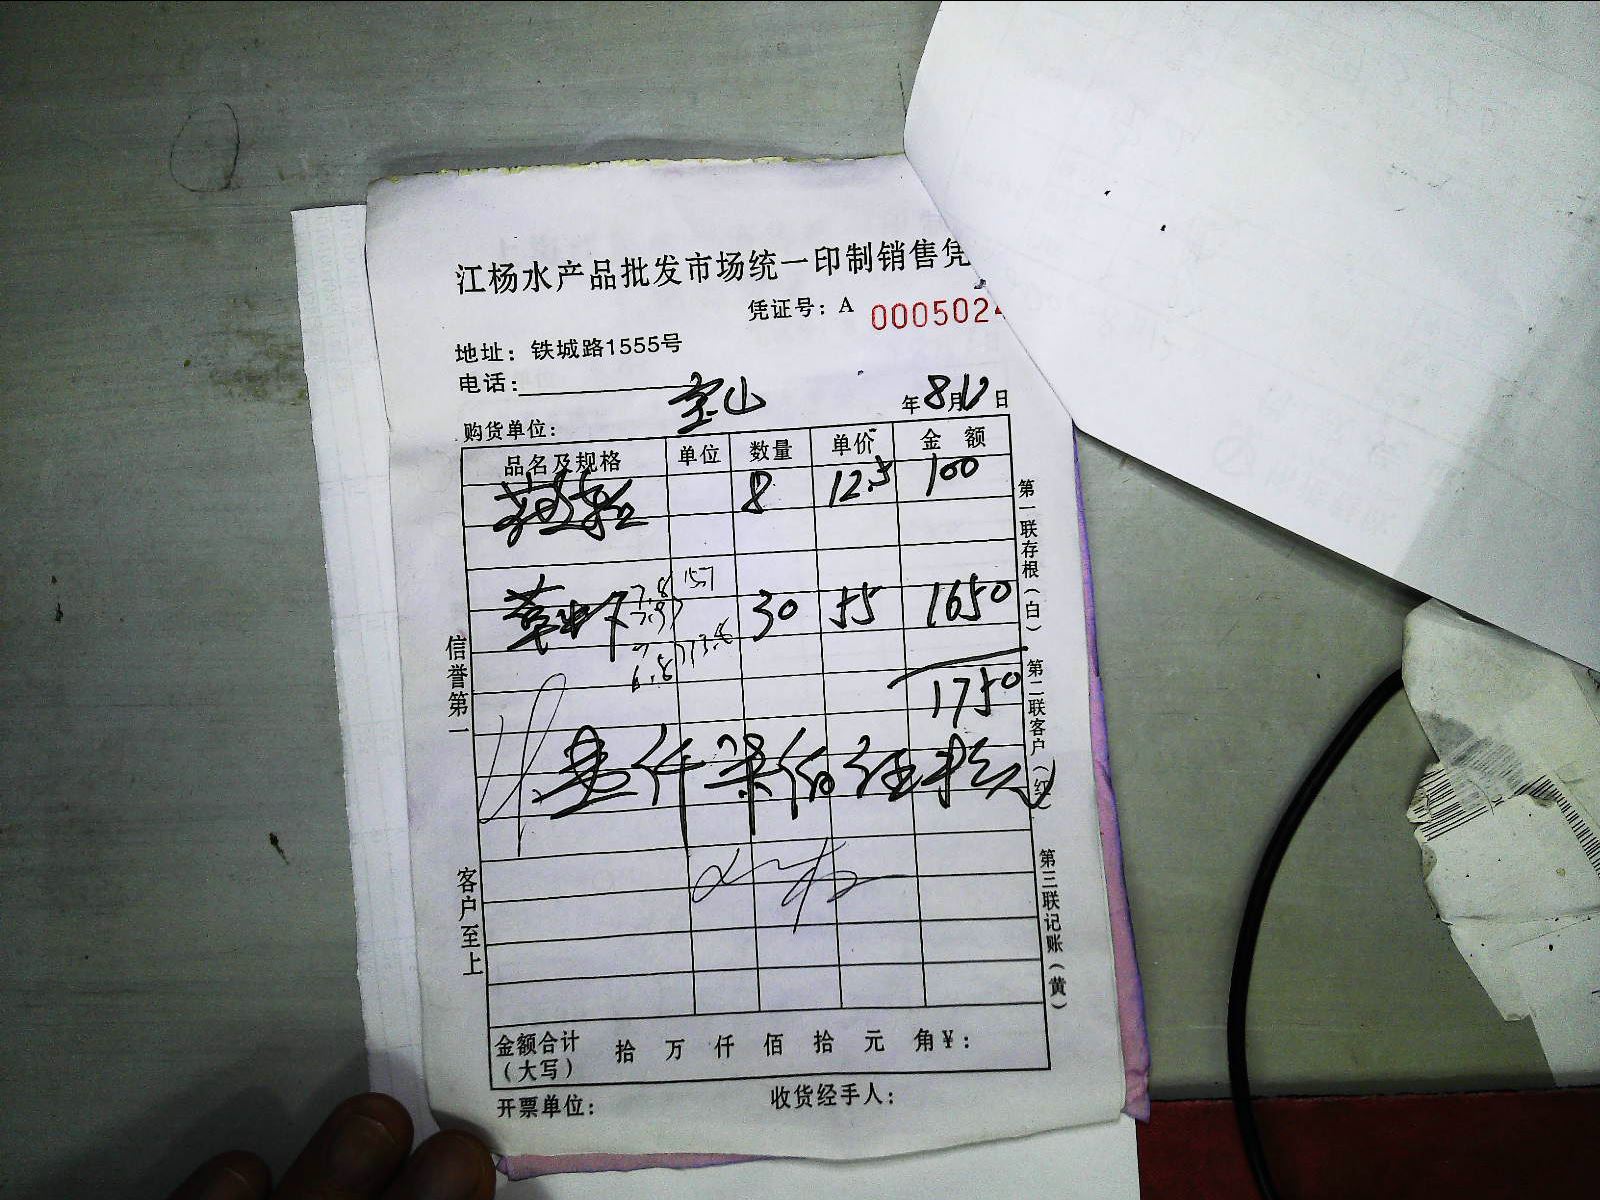 江杨水产品批发市场统一印制销售凭
凭证号：A 0005024
地址：铁城路1555号
电话：
购货单位： 宝山 年8月 日
品名及规格 单位 数量 单价 金额
8 12.5 100
草虾 30 55 1650
7.8 157
7.9
7
6.8 13.8
1750
壹仟柒佰伍拾元
金额合计（大写） 拾 万 仟 佰 拾 元 角￥：
开票单位： 收货经手人：
信誉第一
客户至上
第一联存根（白）
第二联客户（红）
第三联记账（黄）